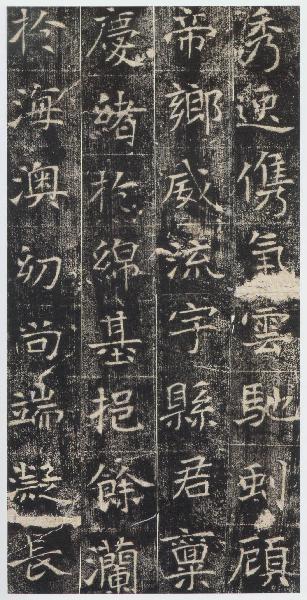 秀儁氣雲馳到顧
帝鄉威流宇縣君稟
慶緒於綿基挹餘瀾
於海澳幼尚端凝長